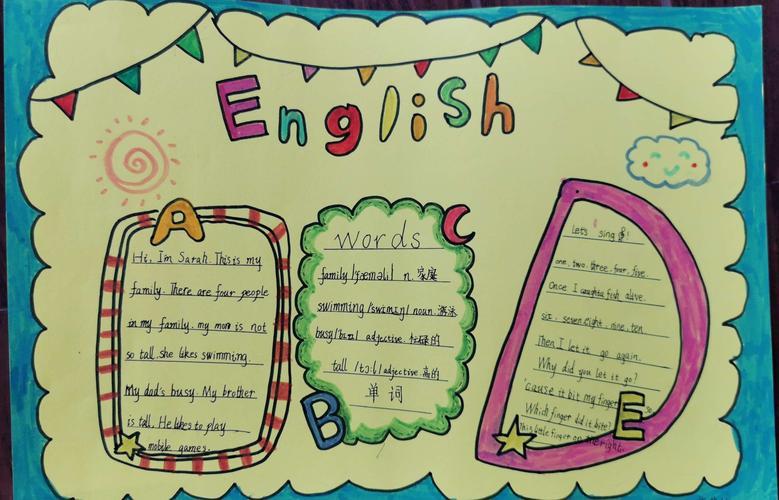 English
A
Hi, I'm Sarah. This is my
family. There are four people
in my family. my mom is not
so tall. she likes swimming.
My dad's busy. My brother
is tall. He likes to play
mobile games.
C
words
family /'fæməli/ n. 家庭
swimming /swɪmɪŋ/ noun. 游泳
busy /'bɪzɪ/ adjective. 忙碌的
tall /tɔ:l/ adjective 高的
单词
B
Let's sing!
one. two. three. four. five.
Once I caught a fish alive.
six. seven. eight. nine. ten
Then I let it go again.
Why did you let it go?
'cause it bit my finger so
Which finger did it bite?
This little finger on the right.
E